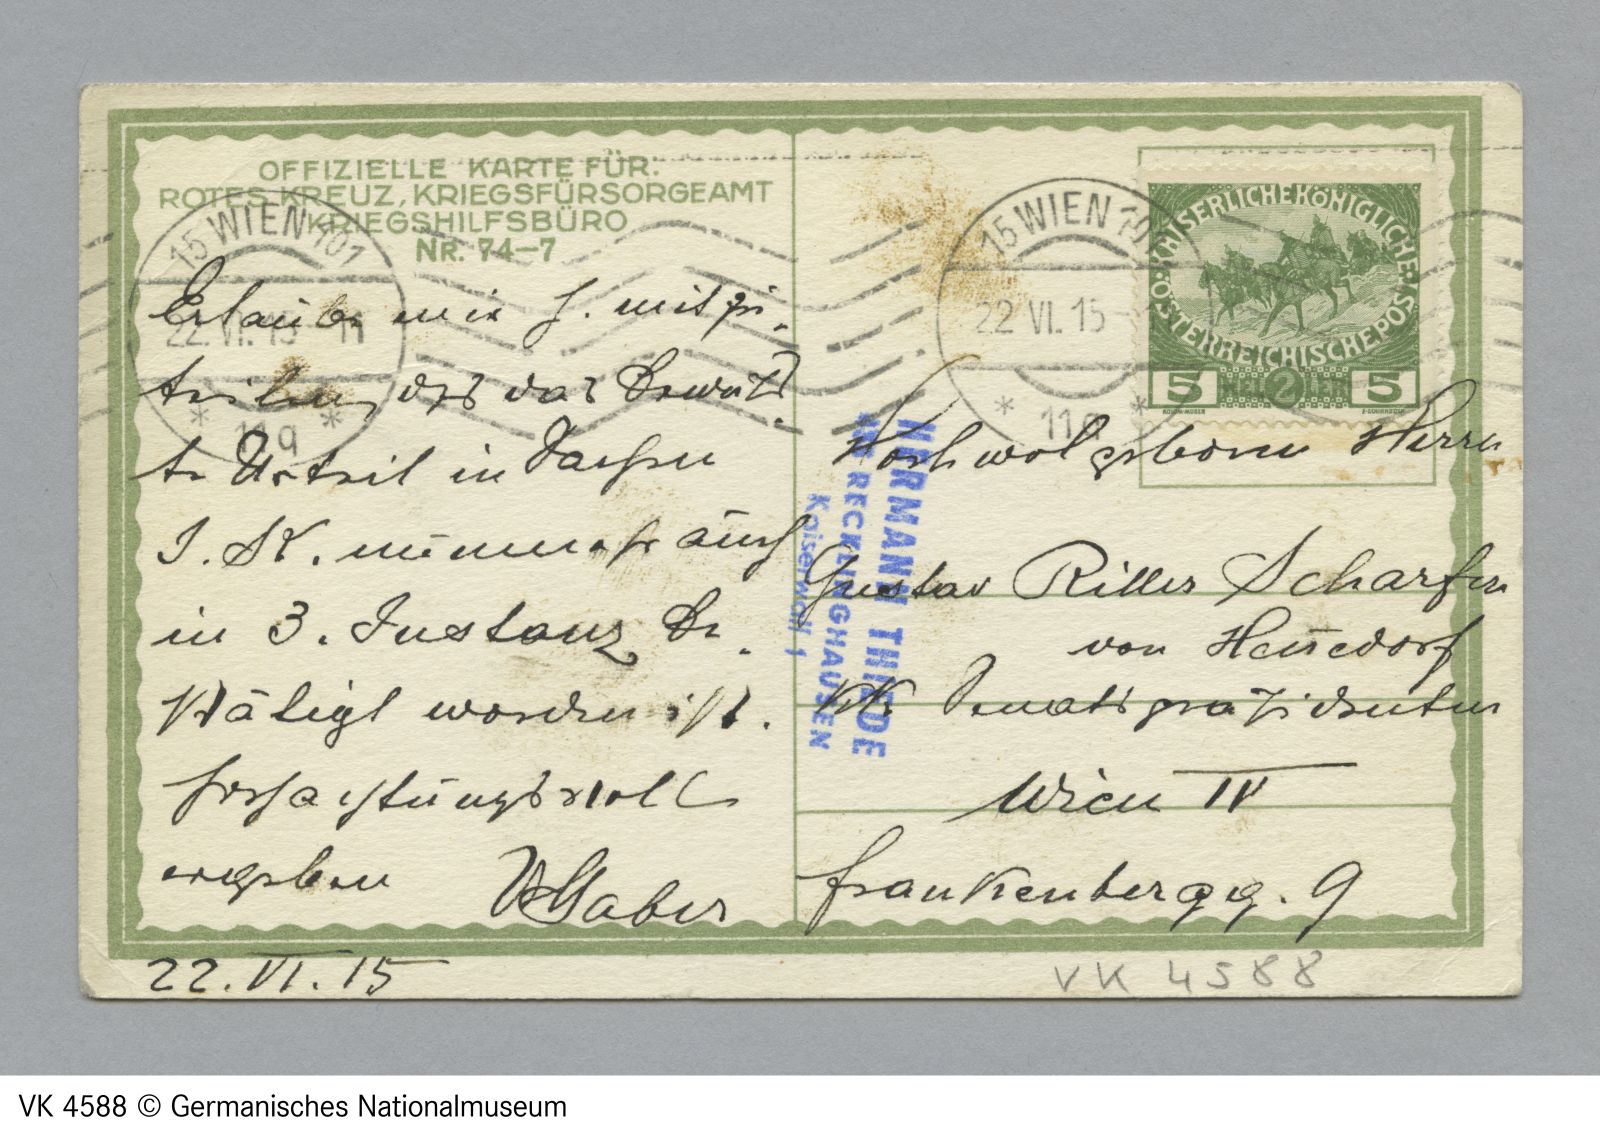 OFFIZIELLE KARTE FÜR:
ROTES KREUZ, KRIEGSFÜRSORGEAMT
KRIEGSHILFSBÜRO
NR. 74-7
15 WIEN 101
22. VI. 15 - 11
* 11a *
Erlaube mir h. mitzu-
teilen, daß das bewuß-
te Urteil in Sachen
J. K. nunmehr auch
in 3. Instanz be-
stätigt worden ist.
Hochachtungsvoll
ergeben
22. VI. 15
15 WIEN 101
22 VI. 15
* 11a *
KAISERLICHE KÖNIGLICHE ÖSTERREICHISCHE POST
5 HELLER 2 5
HERMANN THIEDE
RECKLINGHAUSEN
Kaiserwall 1
Hochwolgeboren Herrn
Gustav Ritter Scharfen
von
KK Senatspräsidenten
Wien IV
Frankenbergg. 9
VK 4588
VK 4588 © Germanisches Nationalmuseum